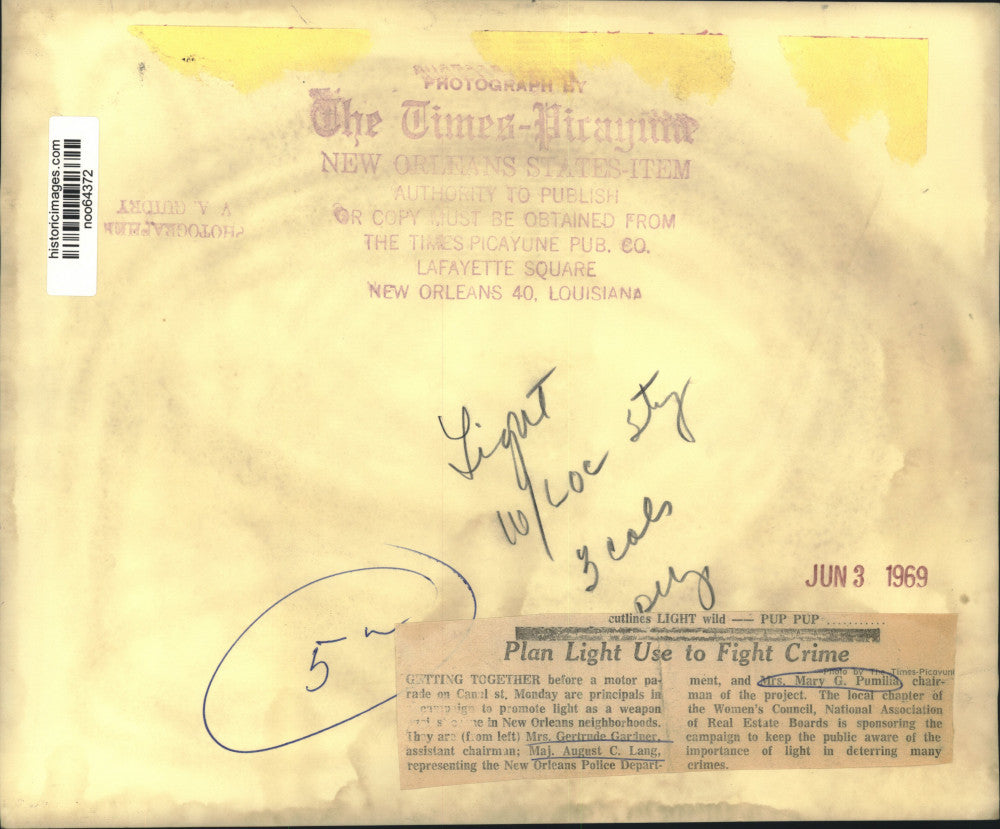 PHOTOGRAPH BY
The Times-Picayune
NEW ORLEANS STATES-ITEM
AUTHORITY TO PUBLISH
OR COPY MUST BE OBTAINED FROM
THE TIMES PICAYUNE PUB. CO.
LAFAYETTE SQUARE
NEW ORLEANS 40, LOUISIANA
historicimages.com
noo64372
PHOTOGRAPHER
V. A. GUIDRY
Light
w/ Loc sty
3 cols
JUN 3 1969
5
cutlines LIGHT wild — PUP PUP ...........
Plan Light Use to Fight Crime
Photo by The Times-Picayun
GETTING TOGETHER before a motor pa-
rade on Canal st. Monday are principals in
campaign to promote light as a weapon
in New Orleans neighborhoods.
They are (from left) Mrs. Gertrude Gardner,
assistant chairman; Maj. August C. Lang,
representing the New Orleans Police Depart-
ment, and Mrs. Mary G. Pumilia, chair-
man of the project. The local chapter of
the Women's Council, National Association
of Real Estate Boards is sponsoring the
campaign to keep the public aware of the
importance of light in deterring many
crimes.